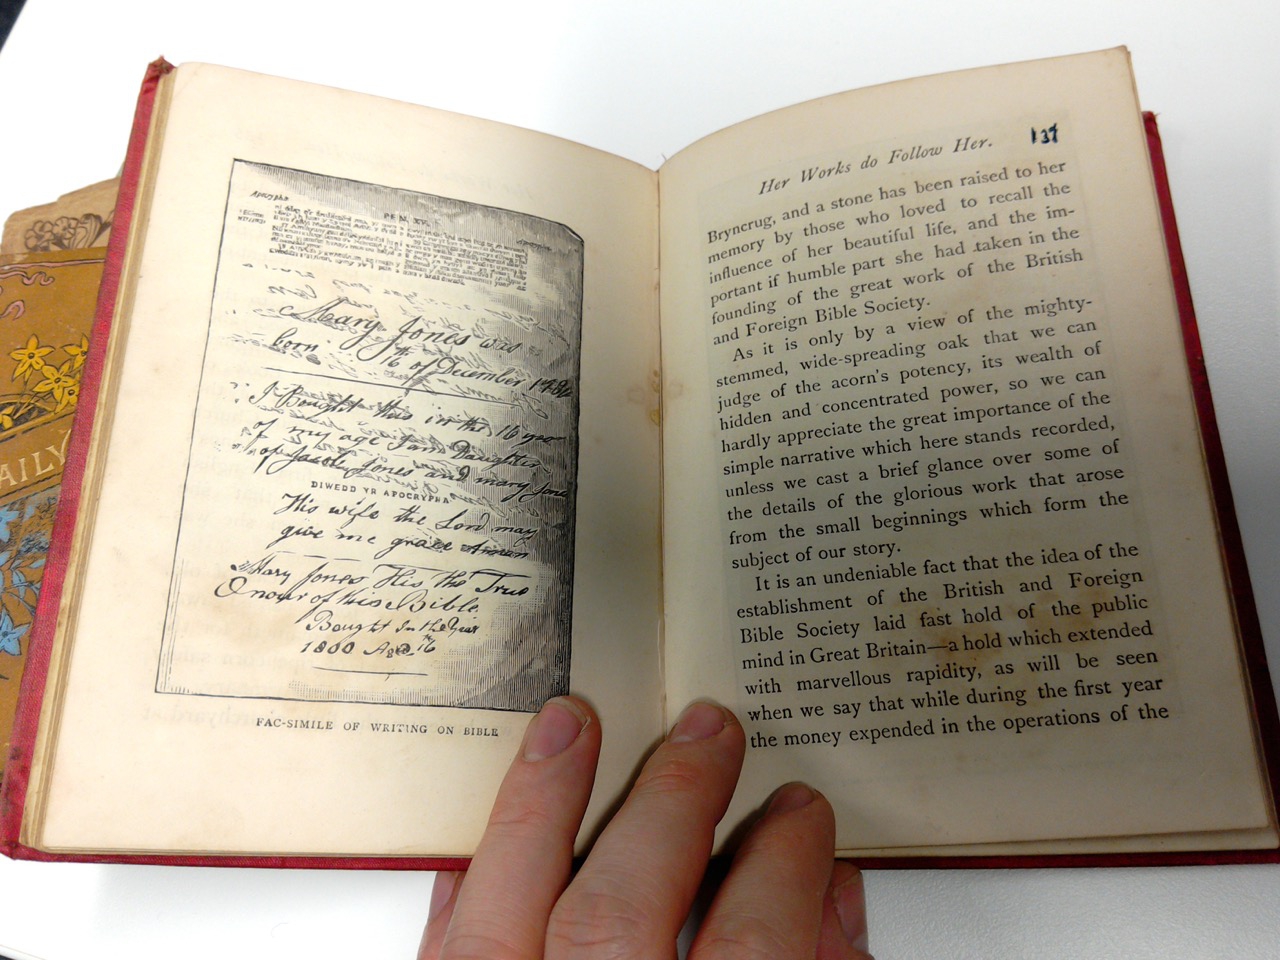 AILY
PEN. XV.
Mary Jones was
born 16th of December 1784
I Bought this in the 16 year
of my age I am Daughter
of Jacob Jones and mary Jones
DIWEDD YR APOCRYPHA
His wife the Lord may
give me grace Amen
Mary Jones His the True
Onour of this Bible
Bought In the Year
1800 Aged 16th
FAC-SIMILE OF WRITING ON BIBLE
Her Works do Follow Her. 137
Bryncrug, and a stone has been raised to her
memory by those who loved to recall the
influence of her beautiful life, and the im-
portant if humble part she had taken in the
founding of the great work of the British
and Foreign Bible Society.
As it is only by a view of the mighty-
stemmed, wide-spreading oak that we can
judge of the acorn's potency, its wealth of
hidden and concentrated power, so we can
hardly appreciate the great importance of the
simple narrative which here stands recorded,
unless we cast a brief glance over some of
the details of the glorious work that arose
from the small beginnings which form the
subject of our story.
It is an undeniable fact that the idea of the
establishment of the British and Foreign
Bible Society laid fast hold of the public
mind in Great Britain—a hold which extended
with marvellous rapidity, as will be seen
when we say that while during the first year
the money expended in the operations of the